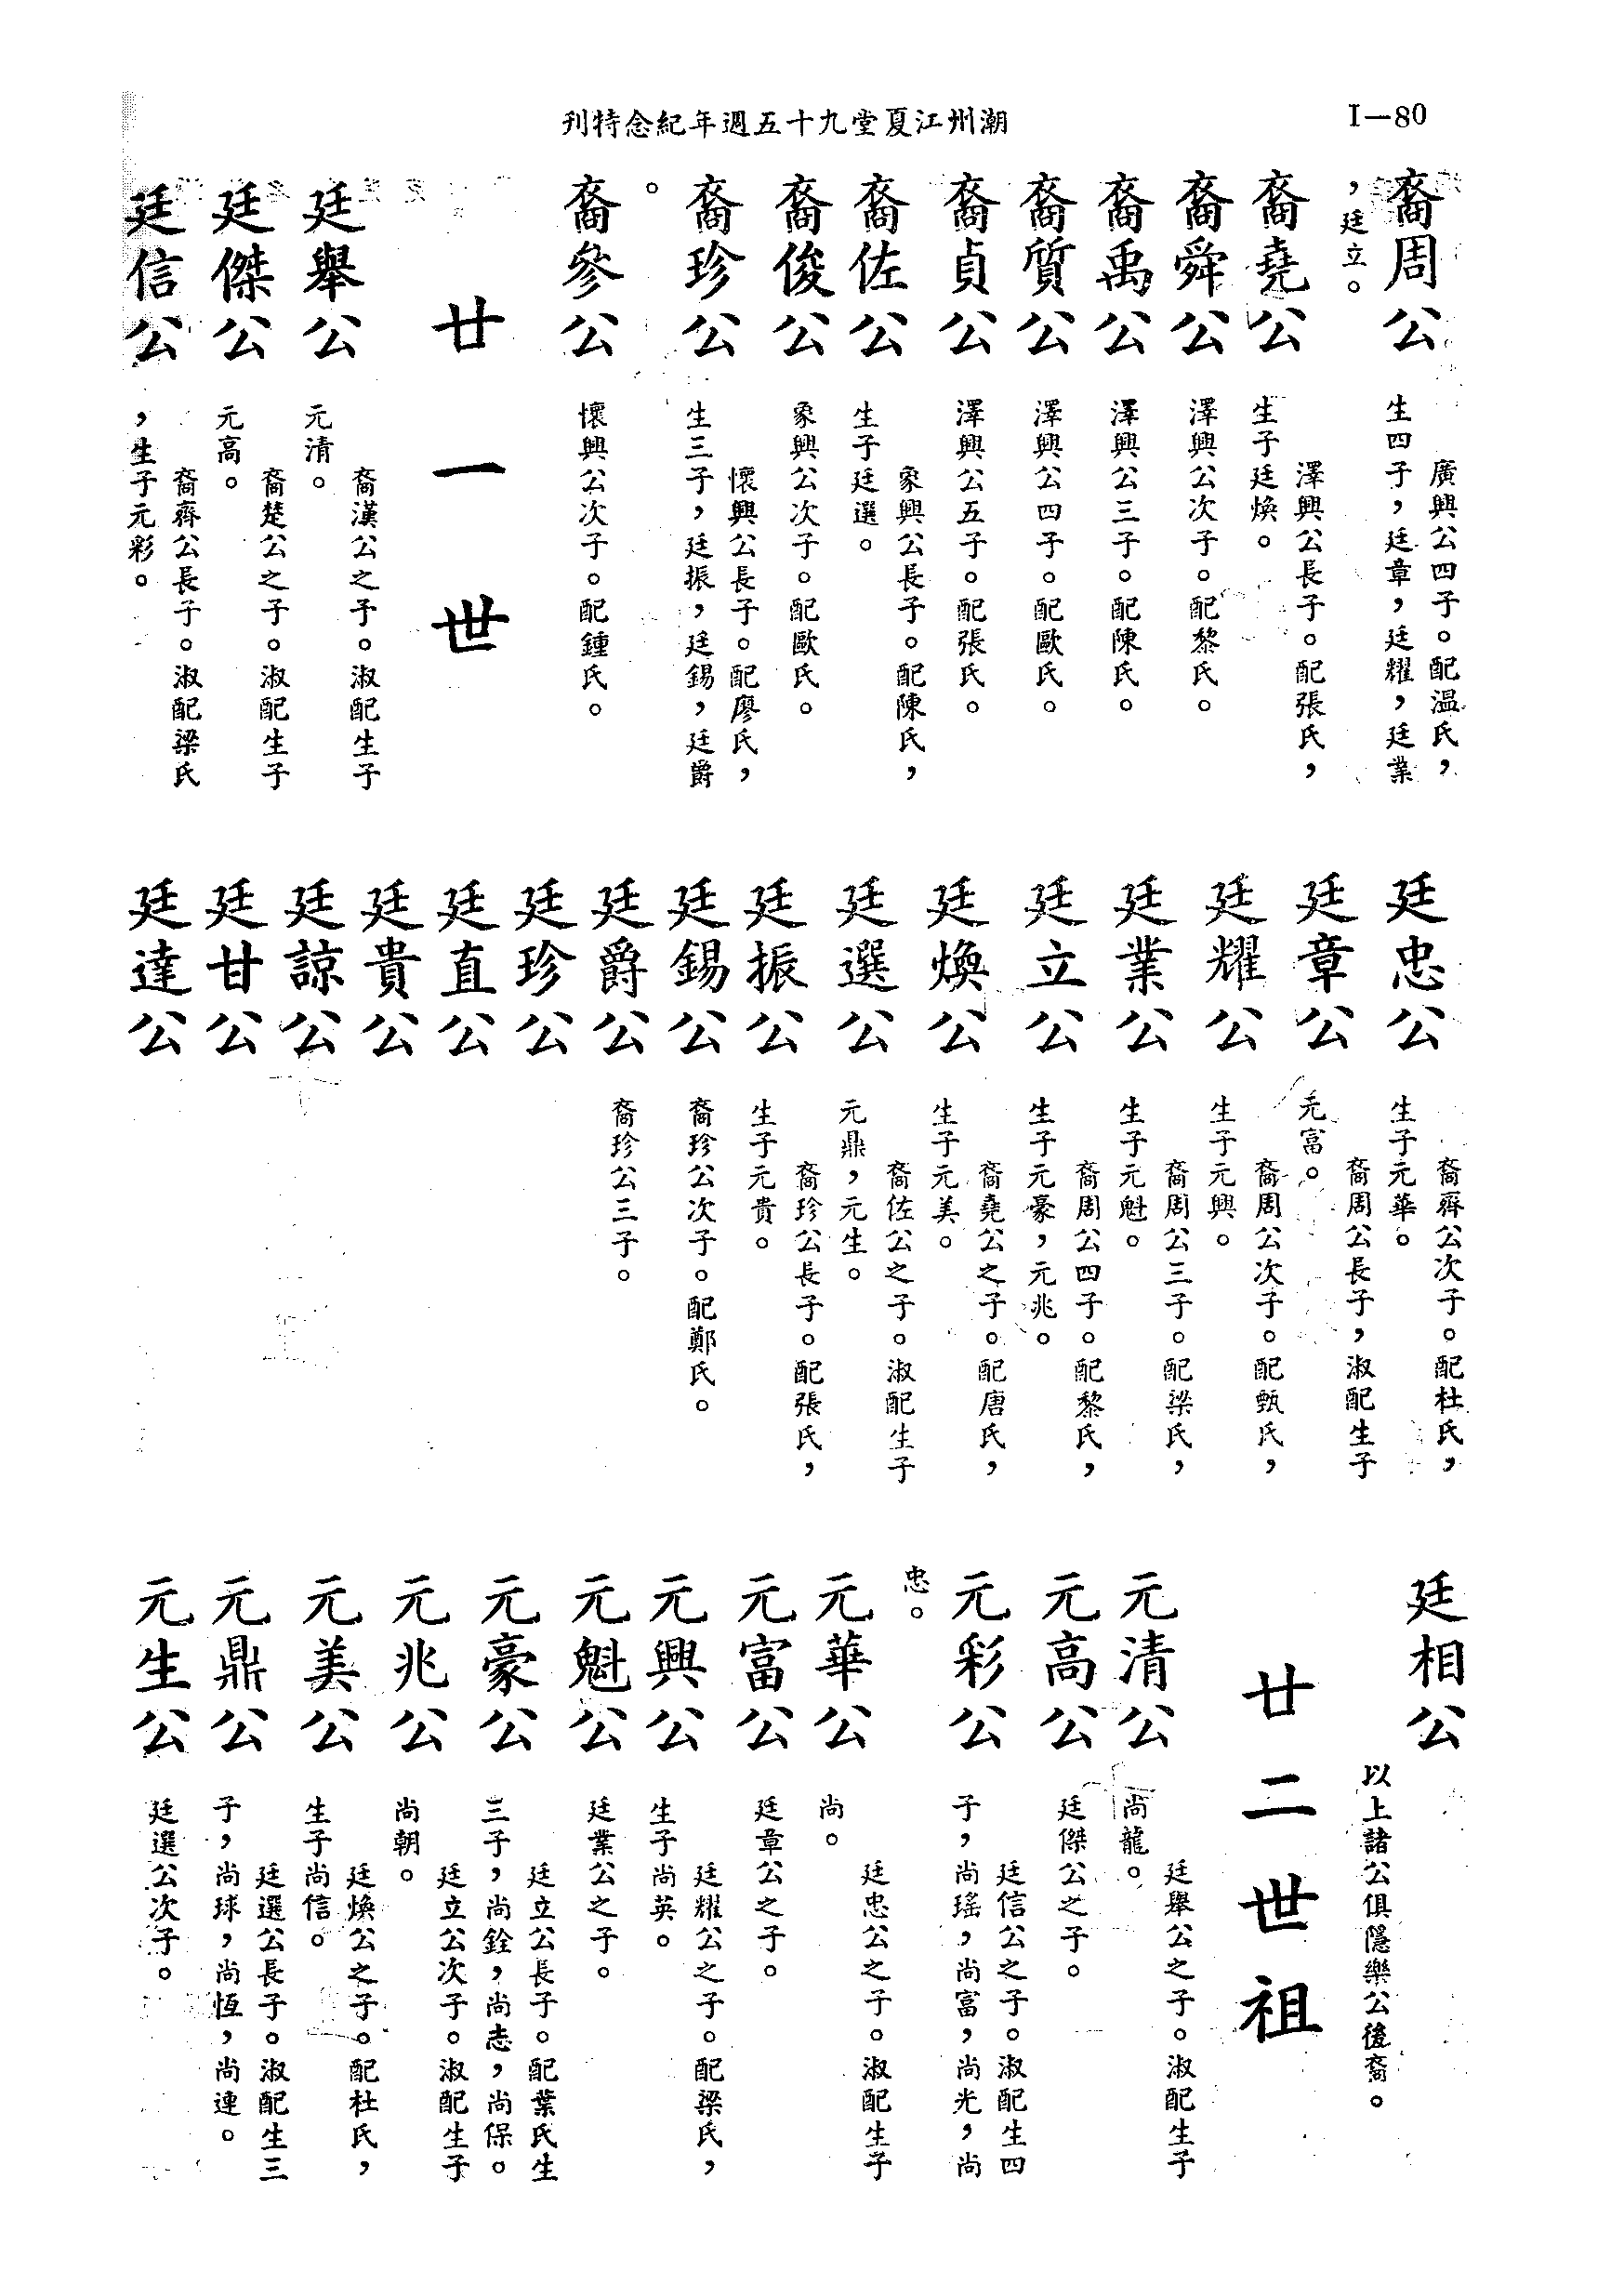 I—80
潮州江夏堂九十五週年紀念特刊
裔周公
廣興公四子。配温氏，
生四子，廷章，廷耀，廷業
，廷立。
裔堯公
澤興公長子。配張氏，
生子廷煥。
裔舜公
澤興公次子。配黎氏。
裔禹公
澤興公三子。配陳氏。
裔質公
澤興公四子。配歐氏。
裔貞公
澤興公五子。配張氏。
裔佐公
象興公長子。配陳氏，
生子廷選。
裔俊公
象興公次子。配歐氏。
裔珍公
懷興公長子。配廖氏，
生三子，廷振，廷錫，廷爵
。
裔參公
懷興公次子。配鍾氏。
廿一世
廷舉公
裔漢公之子。淑配生子
元清。
廷傑公
裔楚公之子。淑配生子
元高。
廷信公
裔齊公長子。淑配梁氏
，生子元彩。
廷忠公
裔齊公次子。配杜氏，
生子元華。
廷章公
裔周公長子，淑配生子
元富。
廷耀公
裔周公次子。配甄氏，
生子元興。
廷業公
裔周公三子。配梁氏，
生子元魁。
廷立公
裔周公四子。配黎氏，
生子元豪，元兆。
廷煥公
裔堯公之子。配唐氏，
生子元美。
廷選公
裔佐公之子。淑配生子
元鼎，元生。
廷振公
裔珍公長子。配張氏，
生子元貴。
廷錫公
裔珍公次子。配鄭氏。
廷爵公
裔珍公三子。
廷珍公
廷直公
廷貴公
廷諒公
廷甘公
廷達公
廷相公
以上諸公俱隱樂公後裔。
廿二世祖
元清公
廷舉公之子。淑配生子
尚龍。
元高公
廷傑公之子。
元彩公
廷信公之子。淑配生四
子，尚瑤，尚富，尚光，尚
忠。
元華公
廷忠公之子。淑配生子
尚。
元富公
廷章公之子。
元興公
廷耀公之子。配梁氏，
生子尚英。
元魁公
廷業公之子。
元豪公
廷立公長子。配葉氏生
三子，尚銓，尚志，尚保。
元兆公
廷立公次子。淑配生子
尚朝。
元美公
廷煥公之子。配杜氏，
生子尚信。
元鼎公
廷選公長子。淑配生三
子，尚球，尚恆，尚連。
元生公
廷選公次子。